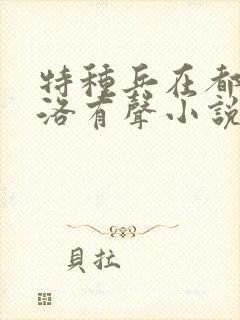 特種兵在都
洛有聲小說
貝拉